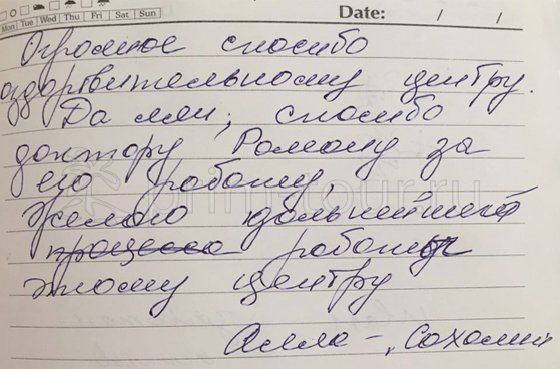 Mon Tue Wed Thu Fri Sat Sun
Date: / /
Огромное спасибо
оздоровительному центру.
Да Мен, спасибо
доктору Роману за
его работу,
желаю дальнейшей
процесса работы
этому центру
primtour.ru
Алла -, Сахалин